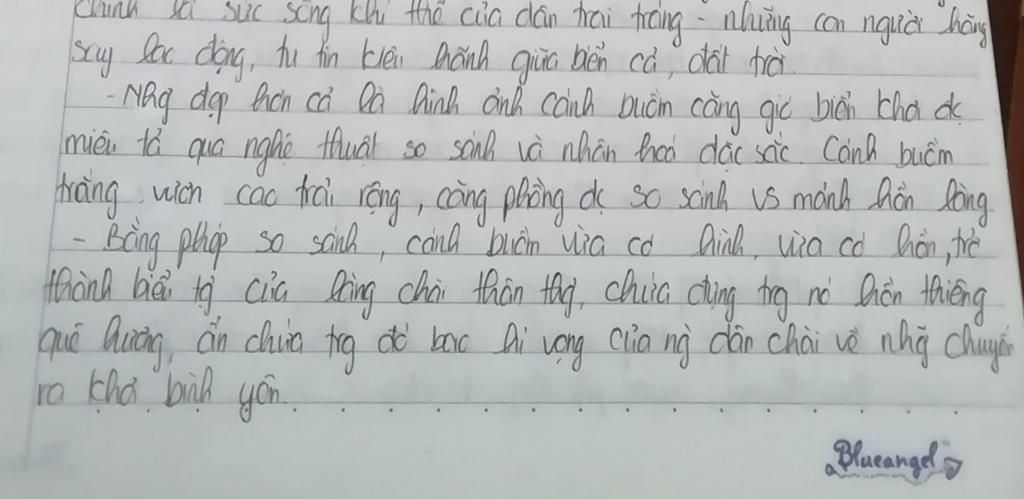 chính là sức sống khí thế của dân trai tráng - những con người hăng
say lao động, tự tin kiêu hãnh giữa biển cả, đất trời.
- Nhg đẹp hơn cả là hình ảnh cánh buồm căng gió biển khơi đc
miêu tả qua nghệ thuật so sánh và nhân hoá đặc sắc. Cánh buồm
trắng vươn cao trải rộng, căng phồng đc so sánh vs mảnh hồn làng
- Bằng phép so sánh, cánh buồm vừa có hình, vừa có hồn, trở
thành biểu tg của làng chài thân thg, chứa đựng trg nó hồn thiêng
quê hương, ẩn chứa trg đó bao hi vọng của ng dân chài về nhg chuyến
ra khơi bình yên.
Blueangel